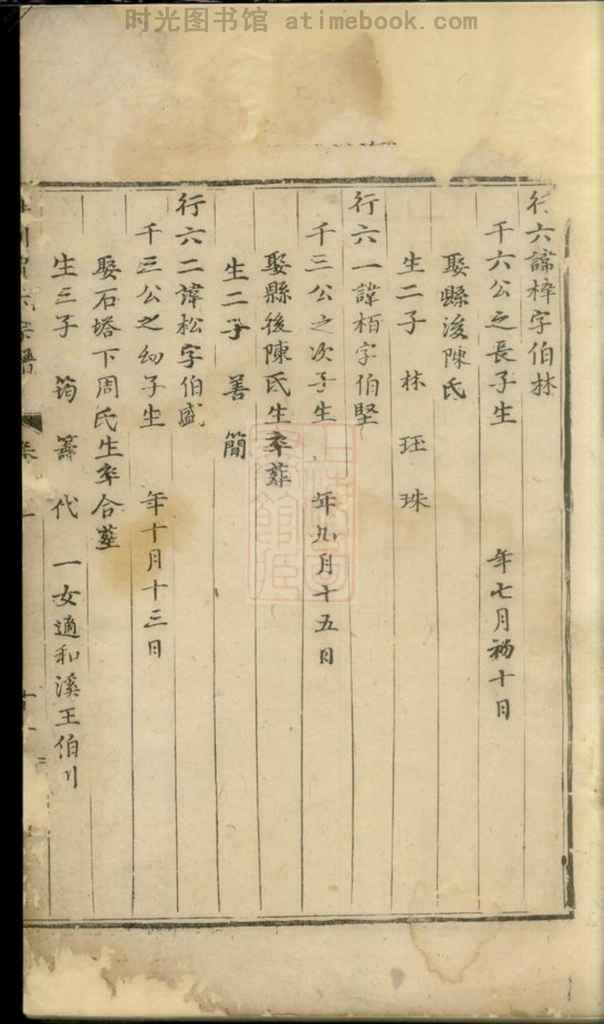 时光图书馆 atimebook.com
行六諱梓字伯林
千六公之長子生 年七月初十日
娶縣後陳氏
生二子 林 珏 珠
行六一諱栢字伯堅
千三公之次子生 年九月十五日
娶縣後陳氏生卒葬
生二子 善 簡
行六二諱松字伯盛
千三公之幼子生 年十月十三日
娶石塔下周氏生卒合塟
生三子 筠 籌 代 一女適和溪王伯川